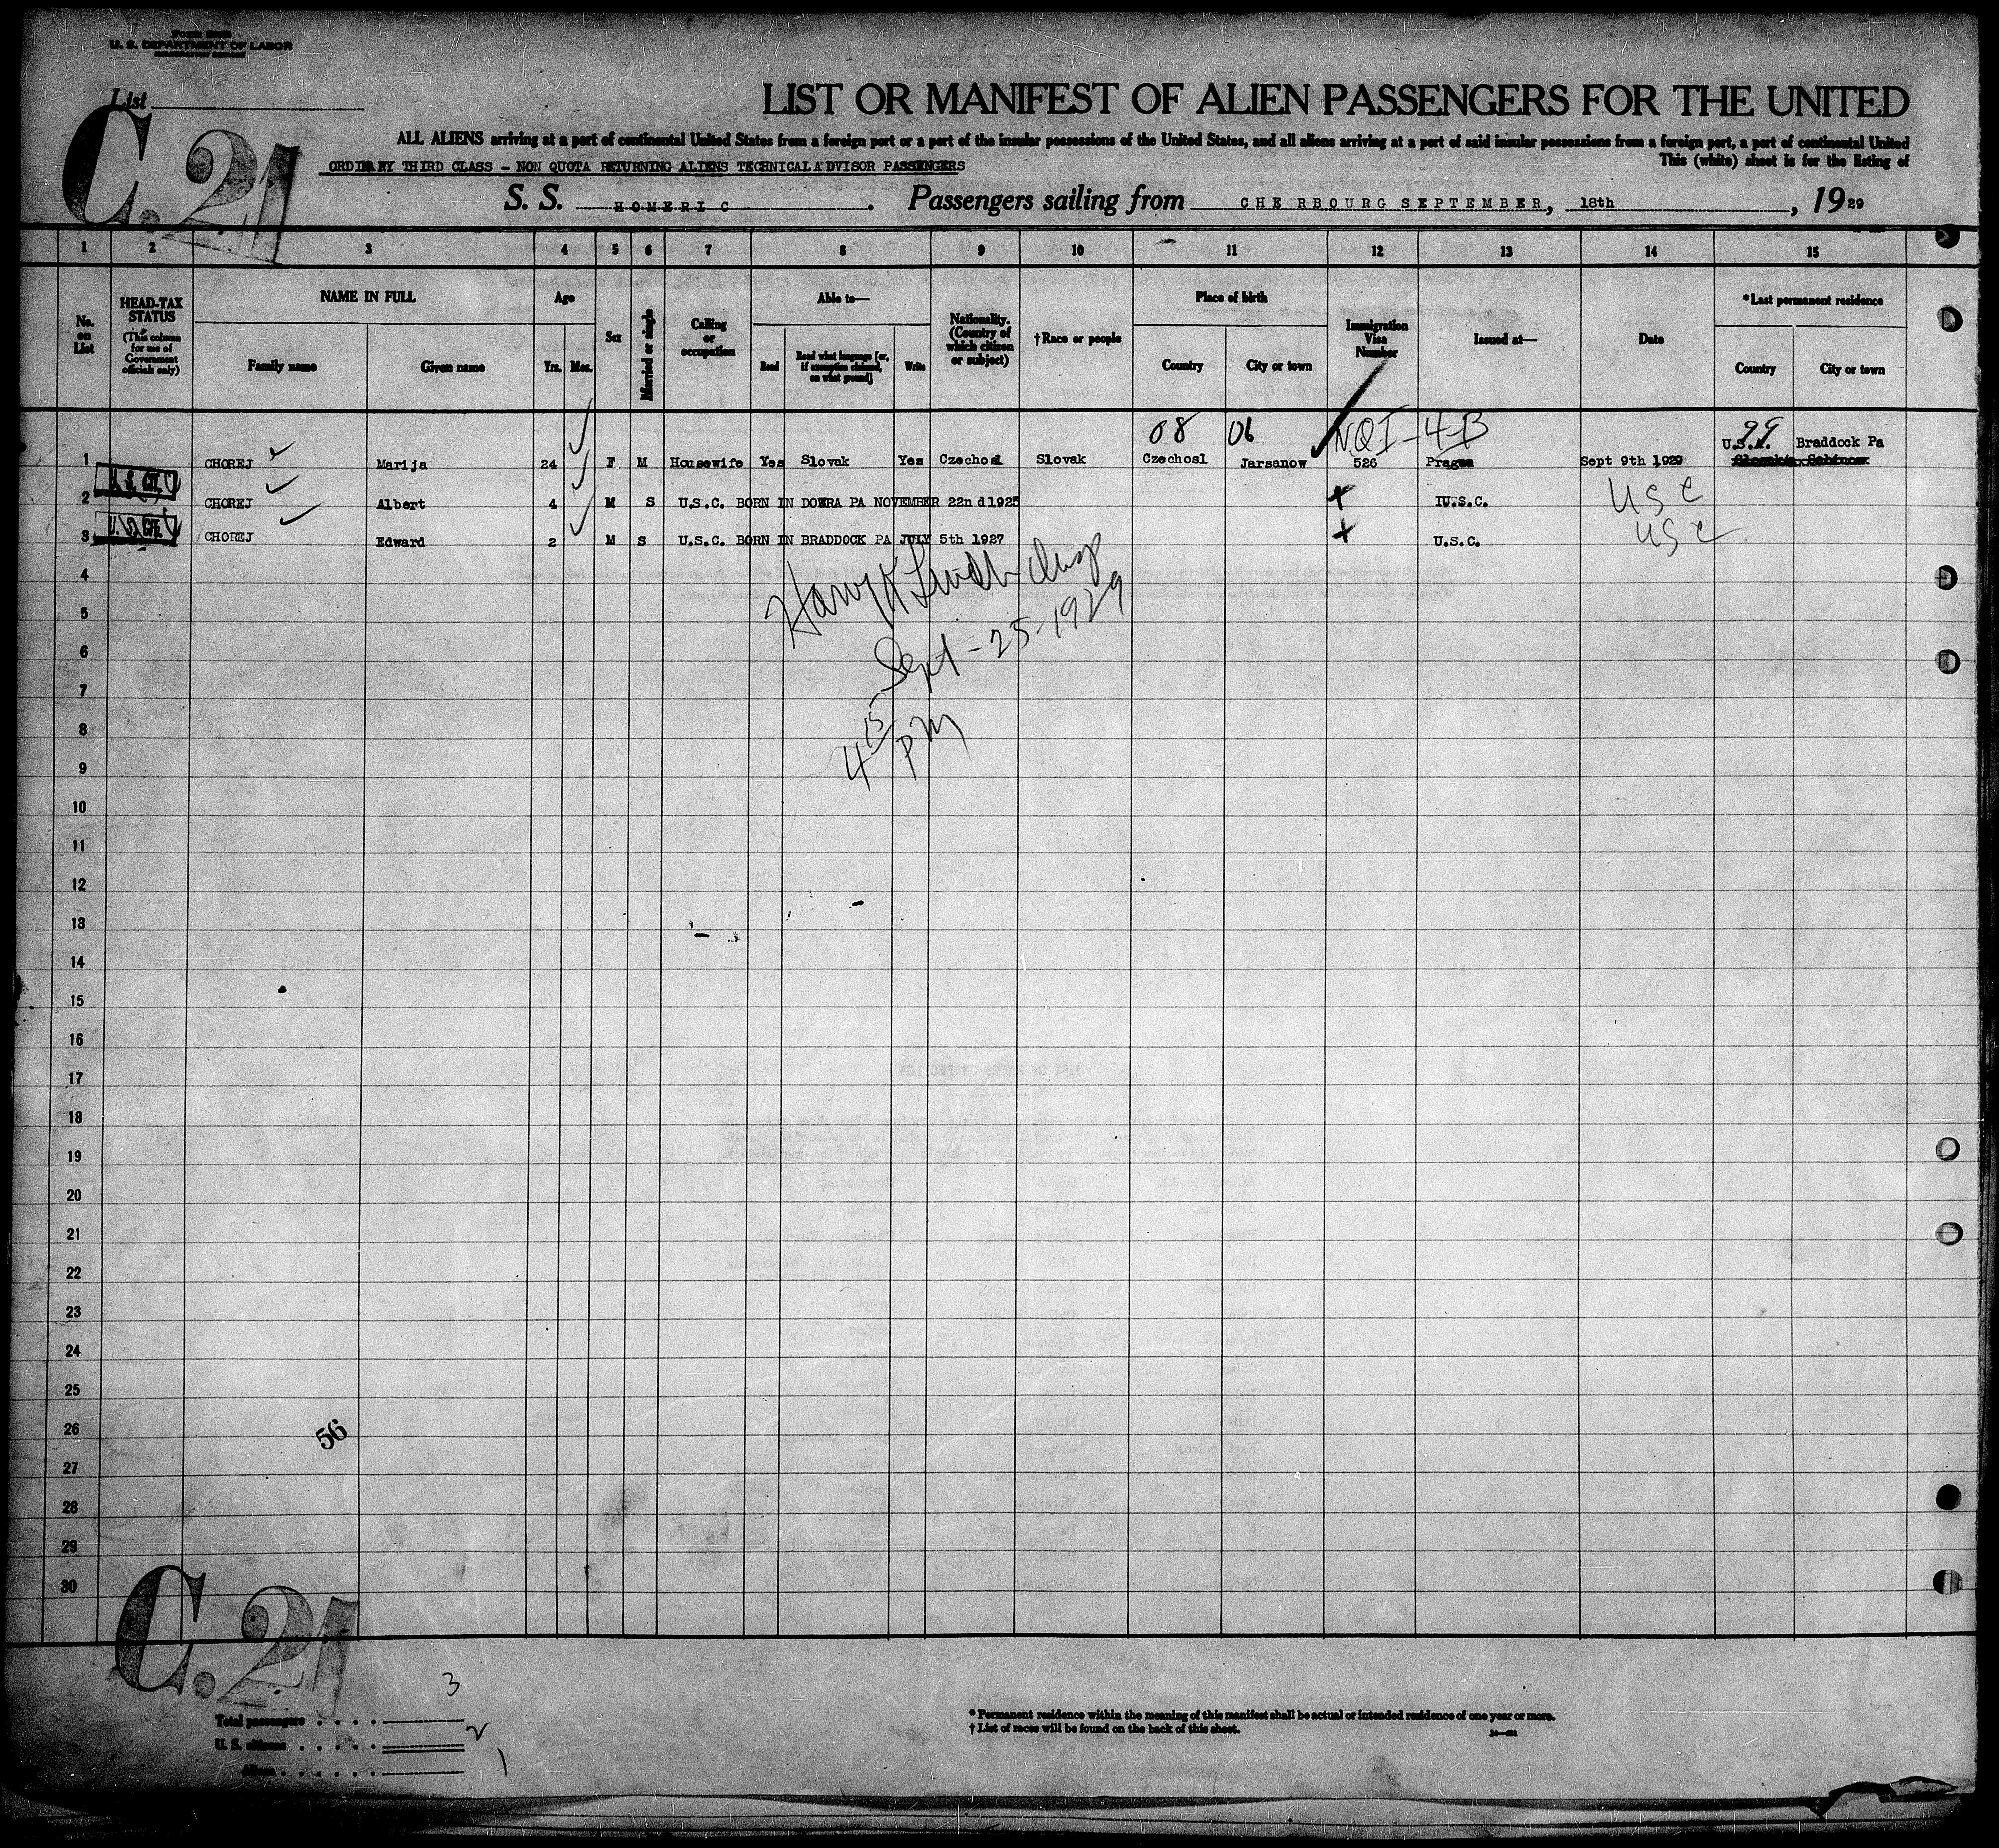 U. S. DEPARTMENT OF LABOR
List
C.21
LIST OR MANIFEST OF ALIEN PASSENGERS FOR THE UNITED
ALL ALIENS arriving at a port of continental United States from a foreign port or a port of the insular possessions of the United States, and all aliens arriving at a port of said insular possessions from a foreign port, a port of continental United
ORDINARY THIRD CLASS - NON QUOTA RETURNING ALIENS TECHNICAL ADVISOR PASSENGERS
This (white) sheet is for the listing of
S. S. HOMERIC. Passengers sailing from CHERBOURG SEPTEMBER, 18th, 1929
1 2 3 4 5 6 7 8 9 10 11 12 13 14 15
No. on List
HEAD-TAX STATUS (This column for use of Government officials only)
NAME IN FULL
Family name Given name
Age
Yrs. Mos.
Sex
Married or single
Calling or occupation
Able to—
Read Read what language [or, if exemption claimed, on what ground] Write
Nationality. (Country of which citizen or subject)
† Race or people
Place of birth
Country City or town
Immigration Visa Number
Issued at—
Date
*Last permanent residence
Country City or town
08 06 NQI-4-B 99
U.S.A. Braddock Pa
1 CHOREJ Marija 24 F M Housewife Yes Slovak Yes Czechosl Slovak Czechosl Jarsanow 526 Prague Sept 9th 1929
U. S. CIT.
2 CHOREJ Albert 4 M S U.S.C. BORN IN DOWRA PA NOVEMBER 22nd 1925 U.S.C. USC
U. S. CIT.
3 CHOREJ Edward 2 M S U.S.C. BORN IN BRADDOCK PA JULY 5th 1927 U.S.C. USC
4
5
Sept-25-1929
6
7
4 15 PM
8
9
10
11
12
13
14
15
16
17
18
19
20
21
22
23
24
25
26
56
27
28
29
30
C.21
3
Total passengers
2
U. S. citizens
1
Aliens
* Permanent residence within the meaning of this manifest shall be actual or intended residence of one year or more.
† List of races will be found on the back of this sheet.